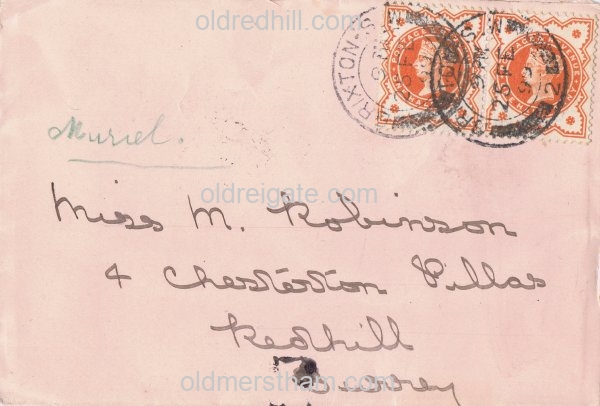 oldredhill.com
BRIXTON-S.
25 FE
99
Muriel.
oldreigate.com
Miss M. Robinson
4 Chesterton Villas
Redhill
oldmerstham.com
Surrey